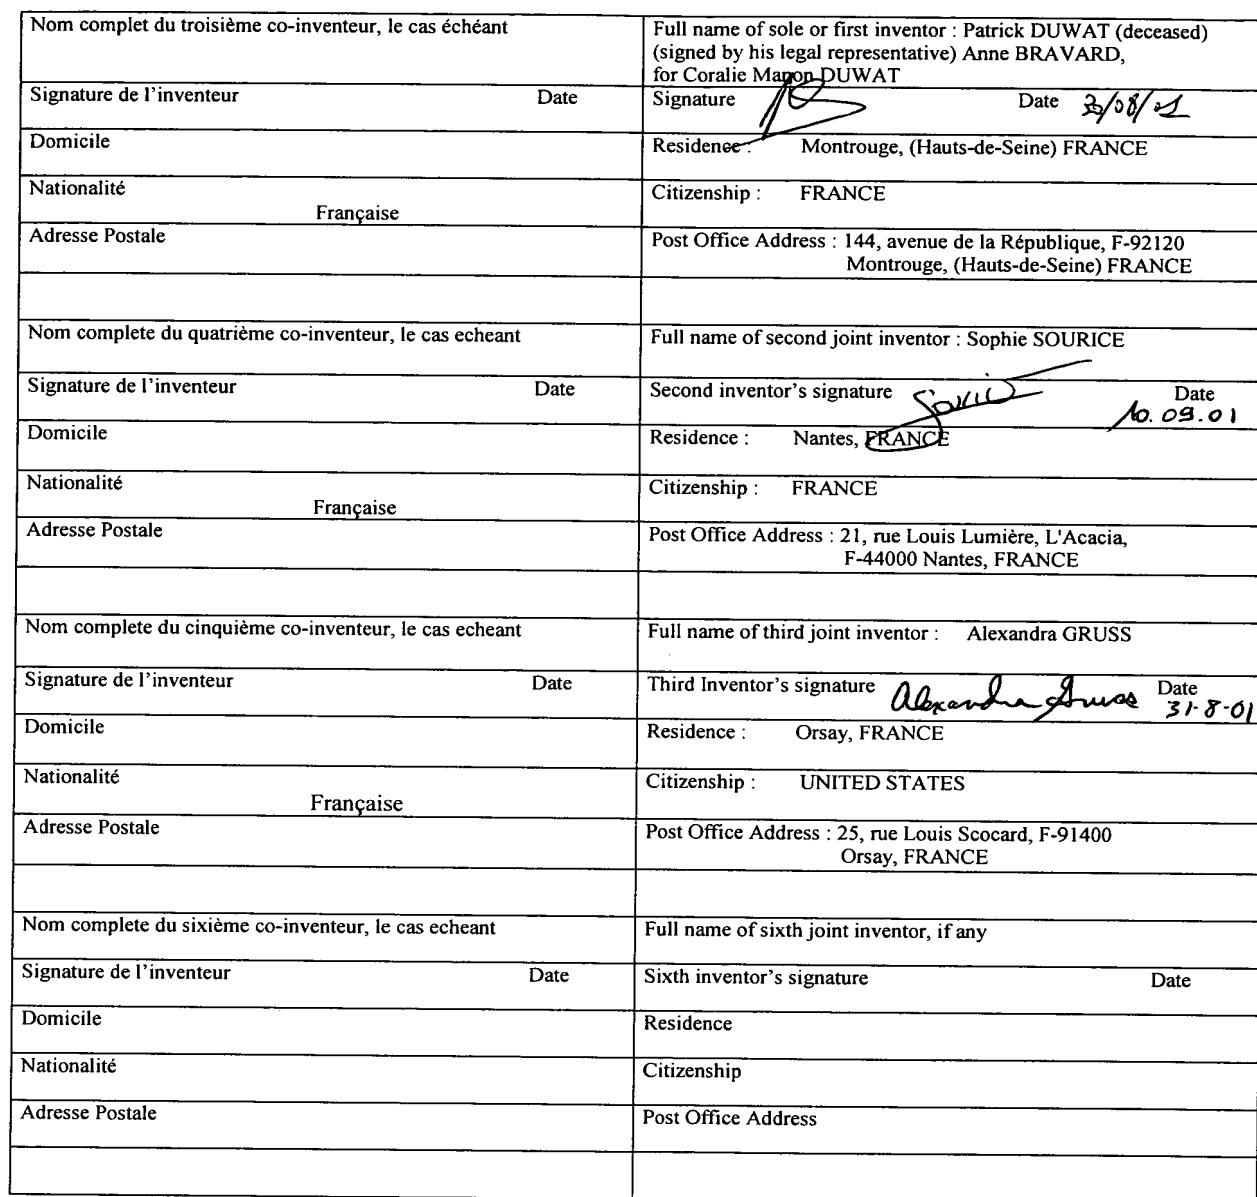 Nom complet du troisième co-inventeur, le cas échéant
Full name of sole or first inventor : Patrick DUWAT (deceased)
(signed by his legal representative) Anne BRAVARD,
for Coralie Manon DUWAT
Signature de l'inventeur Date
Signature Date /08/01
Domicile
Residence : Montrouge, (Hauts-de-Seine) FRANCE
Nationalité
Française
Citizenship : FRANCE
Adresse Postale
Post Office Address : 144, avenue de la République, F-92120
Montrouge, (Hauts-de-Seine) FRANCE
Nom complete du quatrième co-inventeur, le cas echeant
Full name of second joint inventor : Sophie SOURICE
Signature de l'inventeur Date
Second inventor's signature Date
10.09.01
Domicile
Residence : Nantes, FRANCE
Nationalité
Française
Citizenship : FRANCE
Adresse Postale
Post Office Address : 21, rue Louis Lumière, L'Acacia,
F-44000 Nantes, FRANCE
Nom complete du cinquième co-inventeur, le cas echeant
Full name of third joint inventor : Alexandra GRUSS
Signature de l'inventeur Date
Third Inventor's signature Alexandra Gruss Date
31-8-01
Domicile
Residence : Orsay, FRANCE
Nationalité
Française
Citizenship : UNITED STATES
Adresse Postale
Post Office Address : 25, rue Louis Scocard, F-91400
Orsay, FRANCE
Nom complete du sixième co-inventeur, le cas echeant
Full name of sixth joint inventor, if any
Signature de l'inventeur Date
Sixth inventor's signature Date
Domicile
Residence
Nationalité
Citizenship
Adresse Postale
Post Office Address